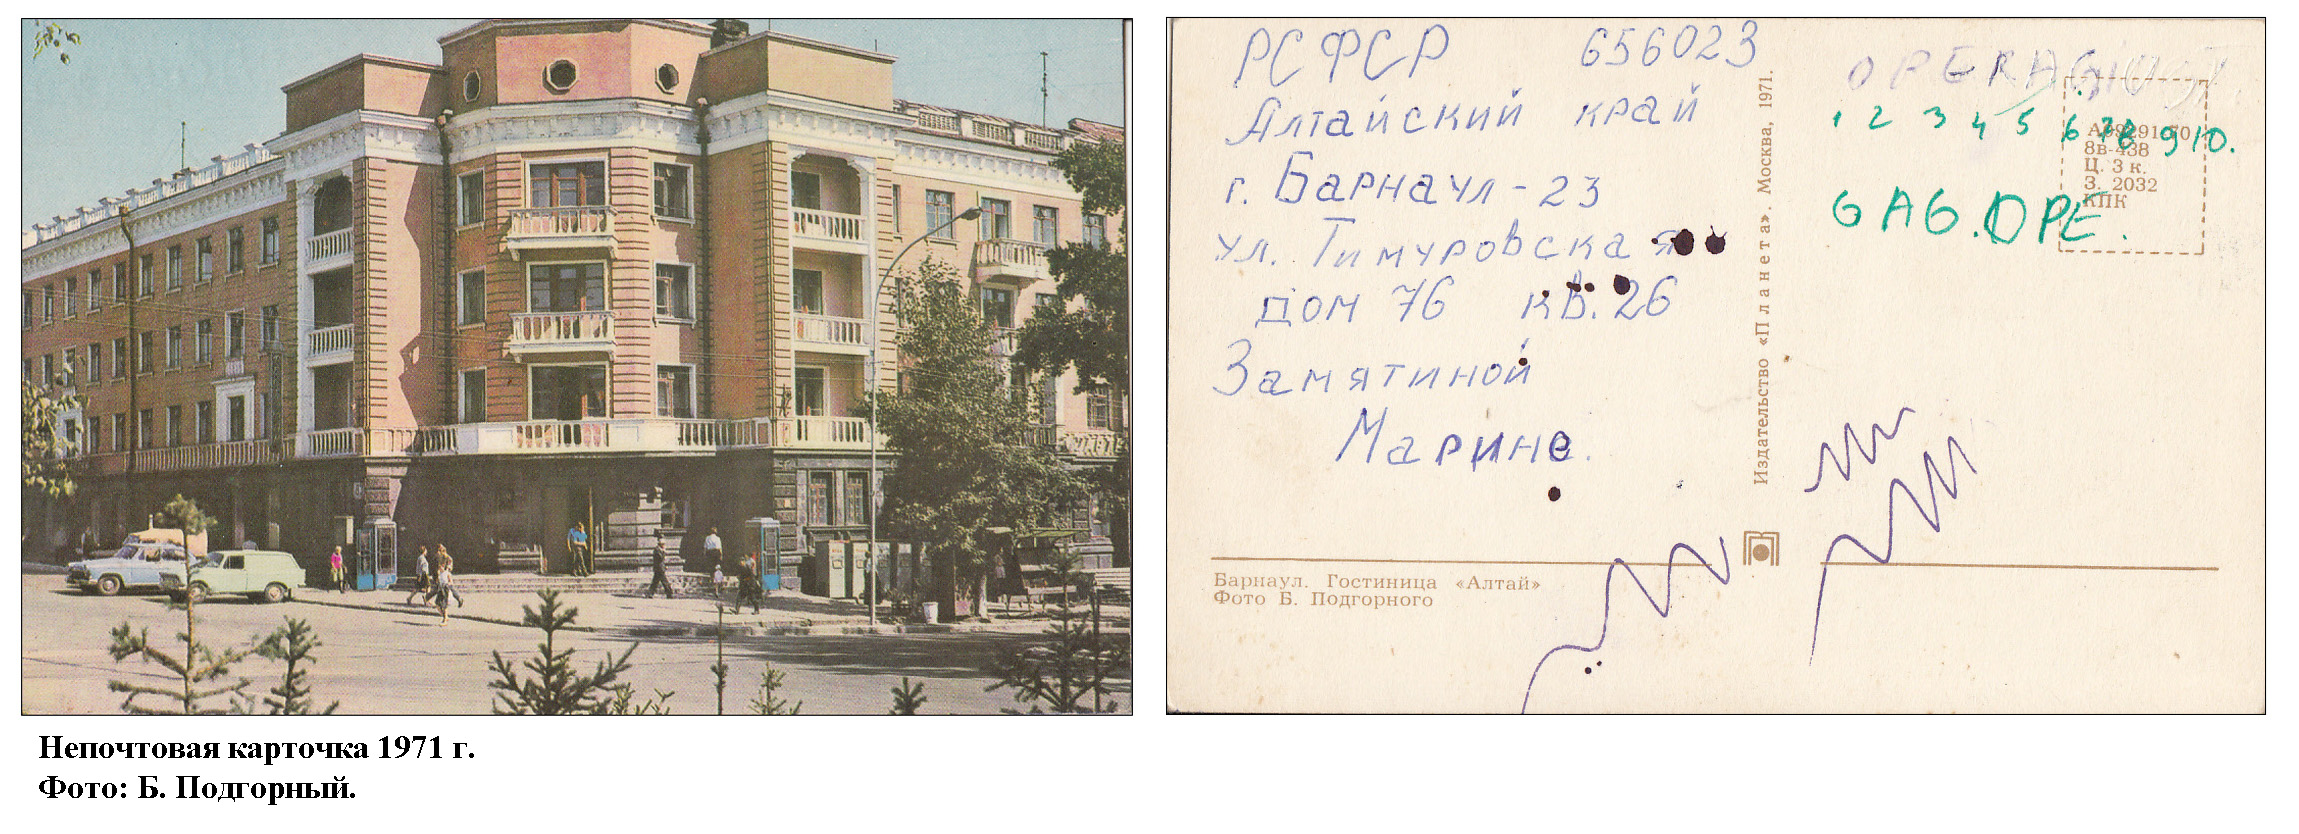 РСФСР 656023
Алтайский край
г. Барнаул - 23
ул. Тимуровская
дом 76 кв. 26
Замятиной
Марине.
Барнаул. Гостиница «Алтай»
Фото Б. Подгорного
Издательство «Планета». Москва, 1971.
1 2 3 4 5 6 7 8 9 10.
8в-438
Ц. 3 к.
З. 2032
КПК
GAG.OPE.
Непочтовая карточка 1971 г.
Фото: Б. Подгорный.